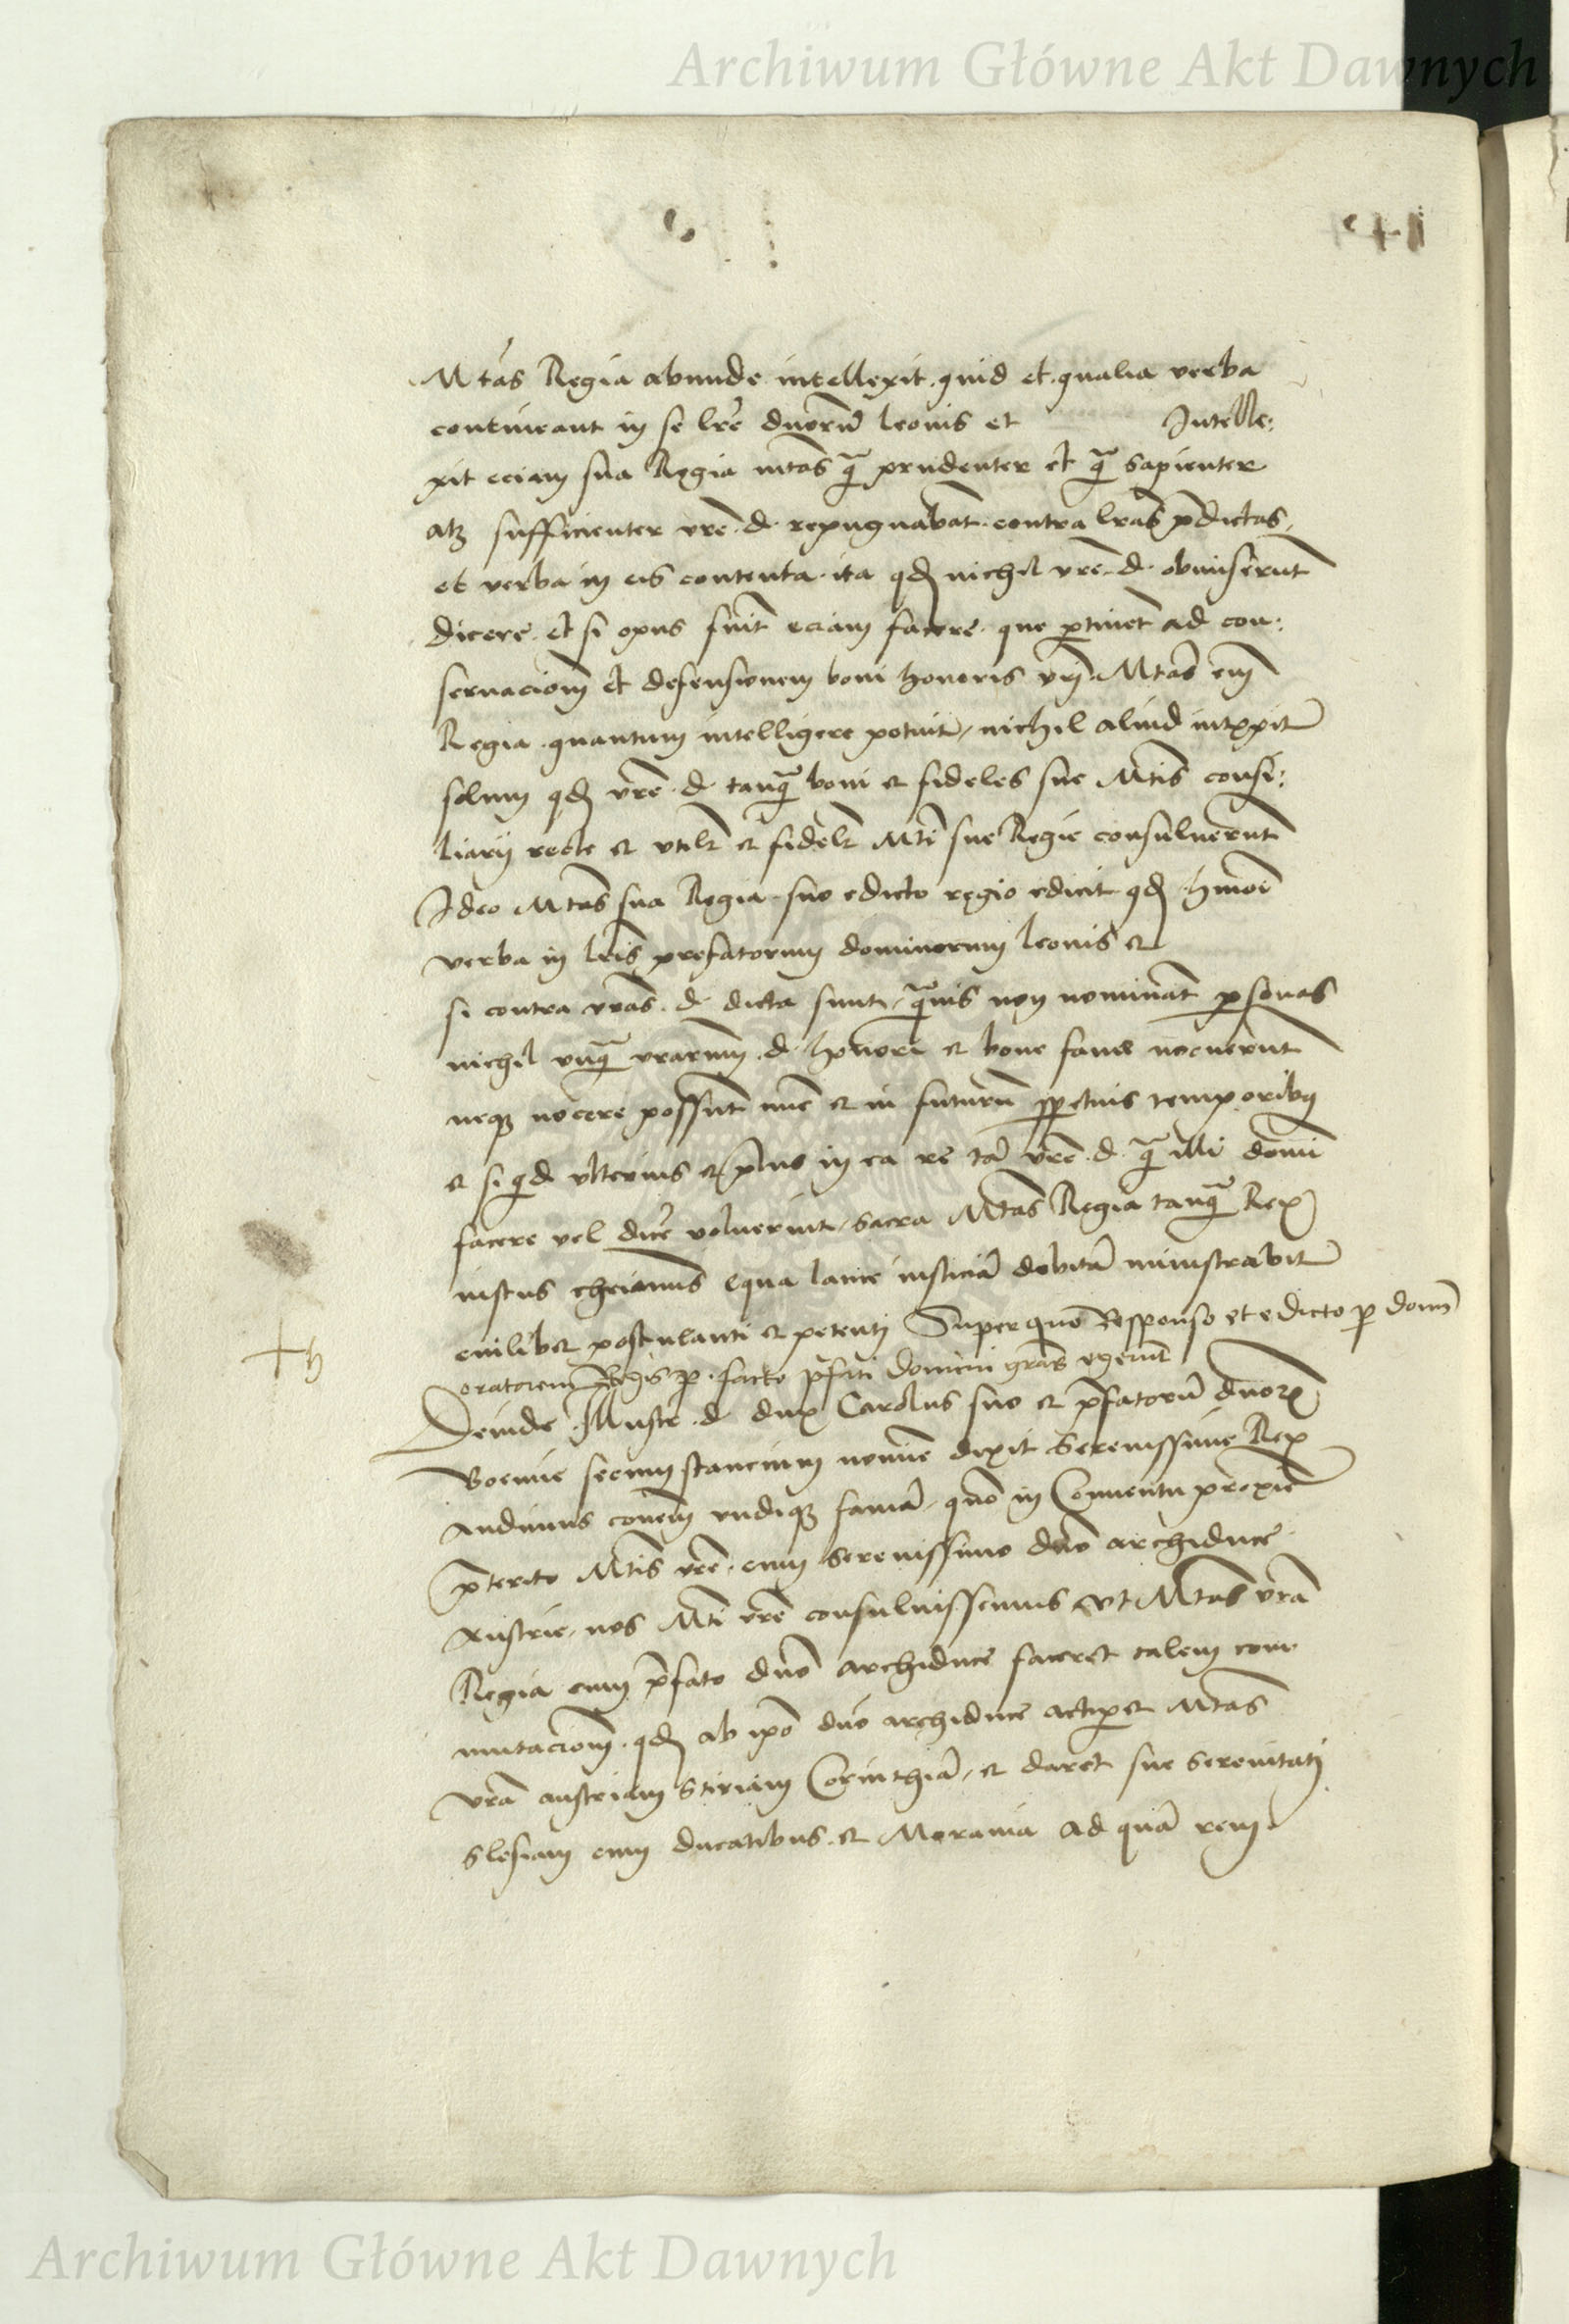 Archiwum Główne Akt Dawnych
Mtas Regia abunde intellexit quid et qualia verba
contineant in se lre dnorum leonis et Intelle:
xit eciam sua Regia mtas q̃ prudenter et q̃ sapienter
atq3 sufficienter vre d repugnabat contra lras pdictas
et verba in eis contenta ita qd nichil vre d obmiserunt
dicere et si opus fuit eciam facere que ptinet ad con:
seruacionem et defensionem boni honoris vri Mtas em
Regia quantum intelligere potuit nichil aliud
solum qd vre d tanq̃ boni et fideles sue Mtis consi:
liarij recte et vtilr et fidelr Mti sue Regie consuluerunt
Ideo Mtas sua Regia suo edicto regio edicit qd hmoi
verba in lris prefatorum dominorum leonis et
si contra vras d dicta sunt q̃uis non nominat psonas
nichil vnq̃ vrarum d honori et bone fame nocuerunt
neq3 nocere possunt nunc et in futurum ppetuis temporibus
et si qd vlterius et in ea re tam vre d q̃ illi domi
facere vel dice voluerint sacra Mtas Regia tanq̃ Rex
iustus chrianus equa lance iusticia debita ministrabit
cuilibet postulanti et petenti Super quo Responso et edicto p dom
oratorem Regis p facto pfati domini gras egerunt
Deinde Illustr d dux Carolus suo et pfatorum dnorum
Boemie secum stancium nomine dixit Serenissime Rex
Audimus comem vndiq3 fama quo in Conuentu proxie
pterito Mtis vre cum Serenissimo dno archiduce
Austrie nos Mti vre consuluissemus vt Mtas vra
Regia cum pfato dno archiduce faceret talem com
mutacionem qd ab ipo dno archiduce acciperet Mtas
vra austriam Stiriam Corinthia et daret sue Serenitati
Slesiam cum ducatibus et Morauia ad qua rem
Archiwum Główne Akt Dawnych